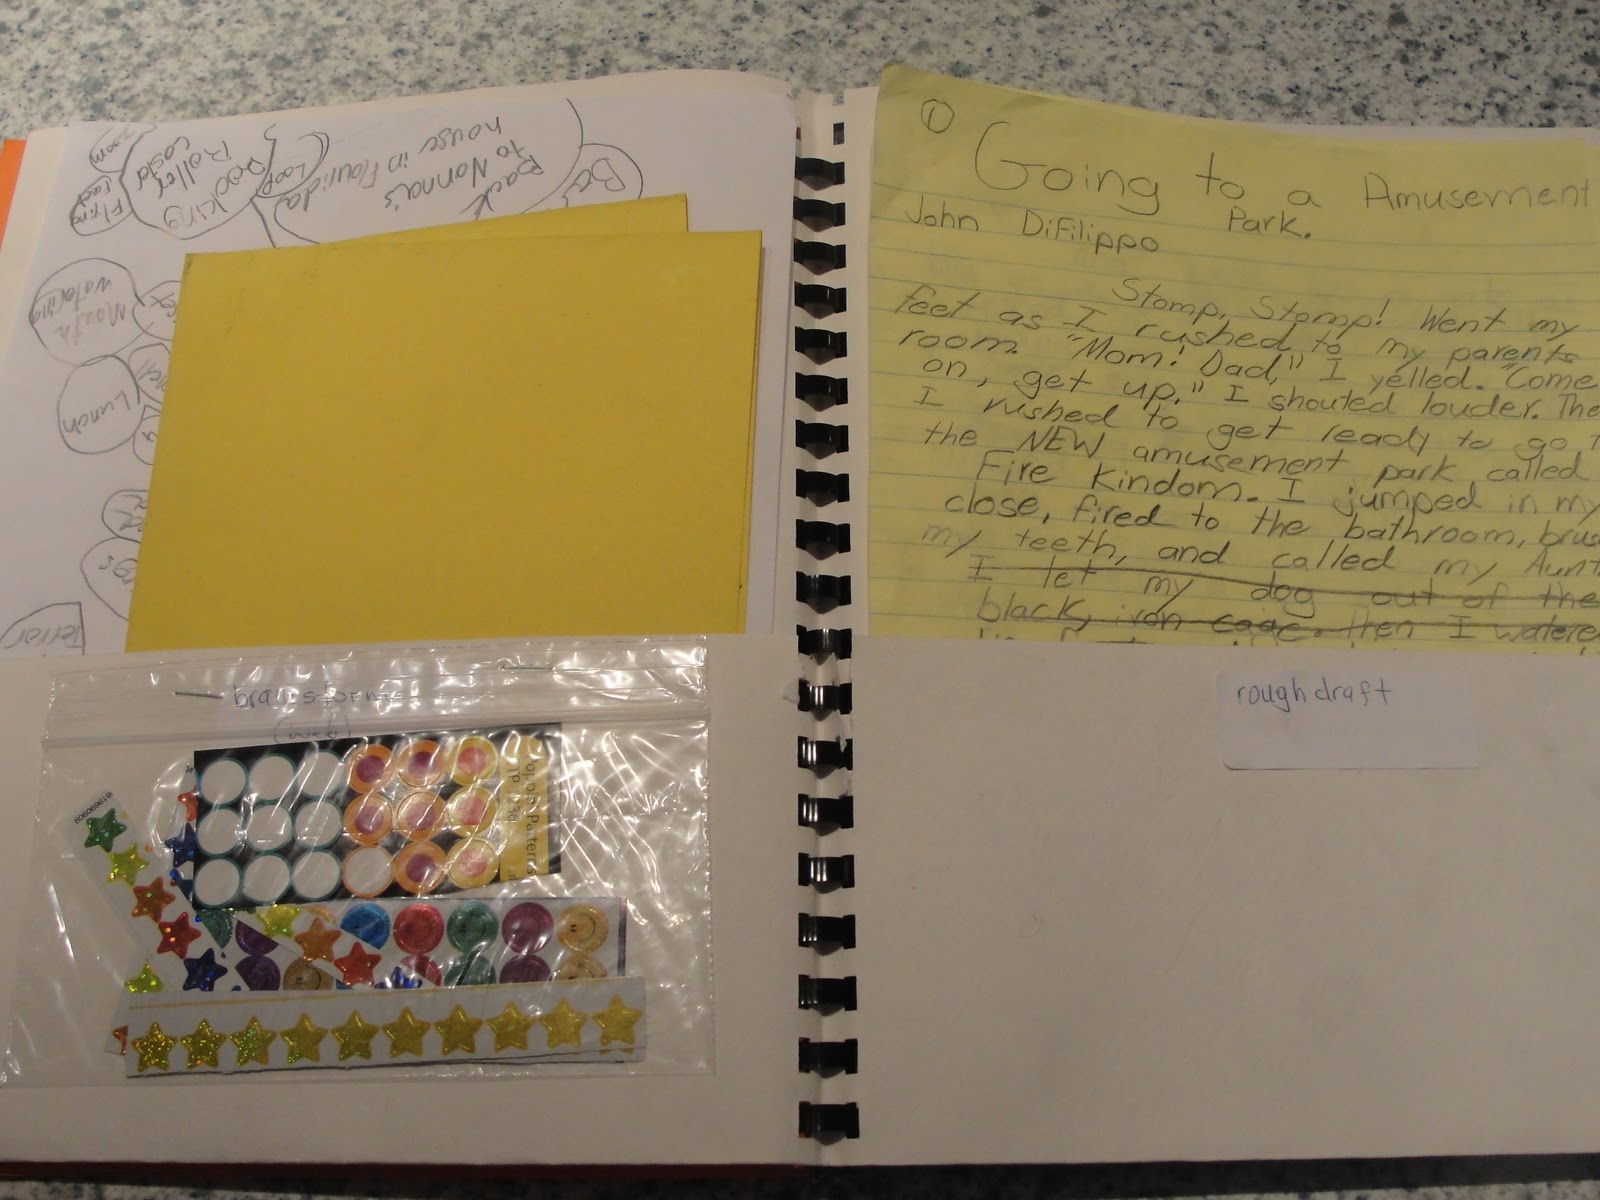 Zoom
Flying
Fast
Rocking
Roller
coster
Loop
Back
to Nonna's
house in Flourida
Mouth
watering
Lunch
Terror
brainstorm
(web)
TP
①
Going to a Amusement
Park.
John DiFilippo
Stomp, Stomp! Went my
feet as I rushed to my parents
room. "Mom! Dad," I yelled. "Come
on, get up." I shouted louder. The
I rushed to get ready to go t
the NEW amusement park called
Fire Kindom. I jumped in my
close, fired to the bathroom, brus
my teeth, and called my Aunt
I let my dog out of the
black, iron cage. Then I watere
rough draft